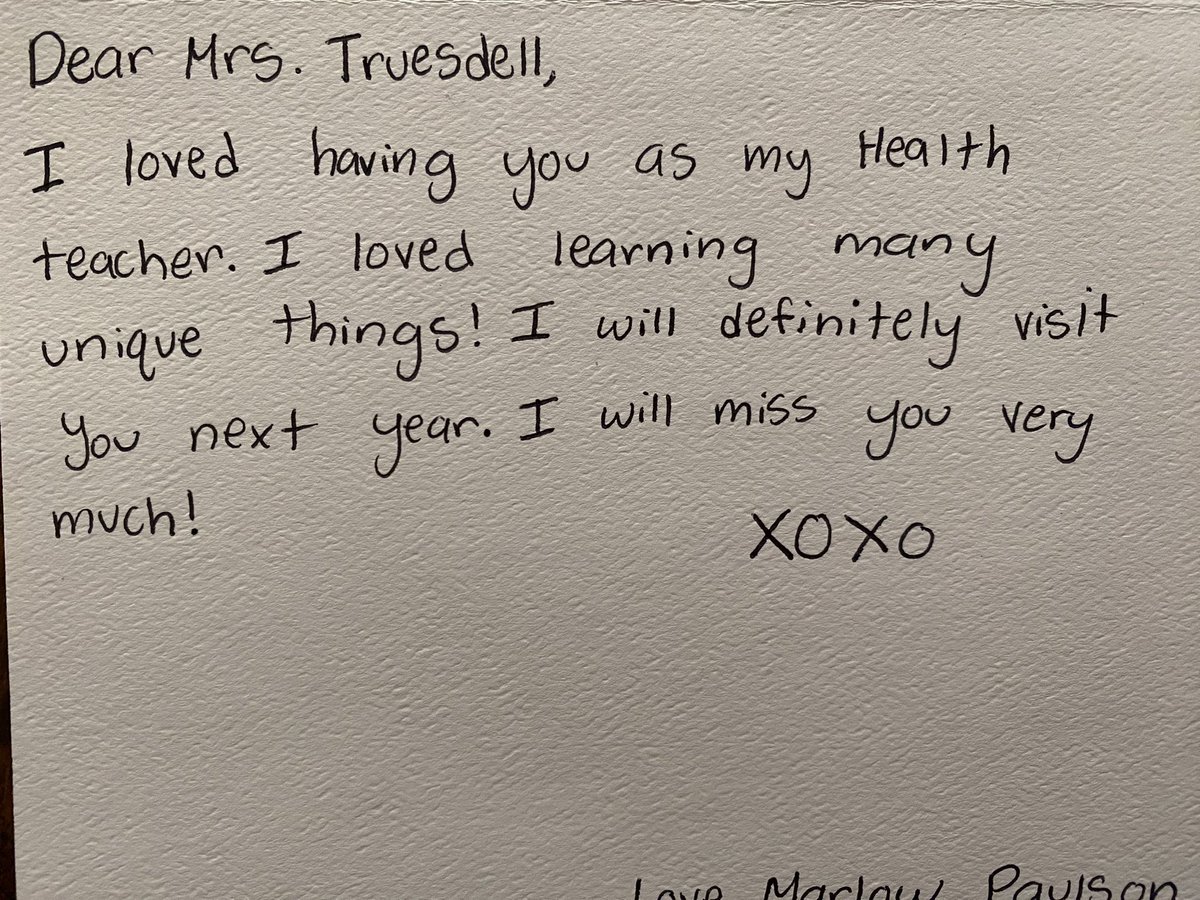 Dear Mrs. Truesdell,
I loved having you as my Health
teacher. I loved learning many
unique things! I will definitely visit
you next year. I will miss you very
much!
XOXO
Love Marlow Paulson